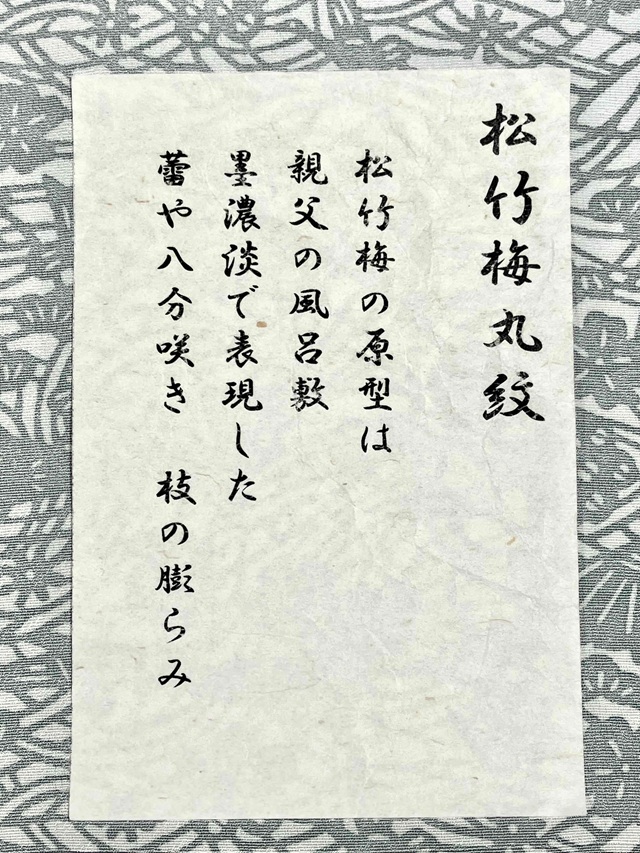 松竹梅丸紋
松竹梅の原型は
親父の風呂敷
墨濃淡で表現した
蕾や八分咲き　枝の膨らみ